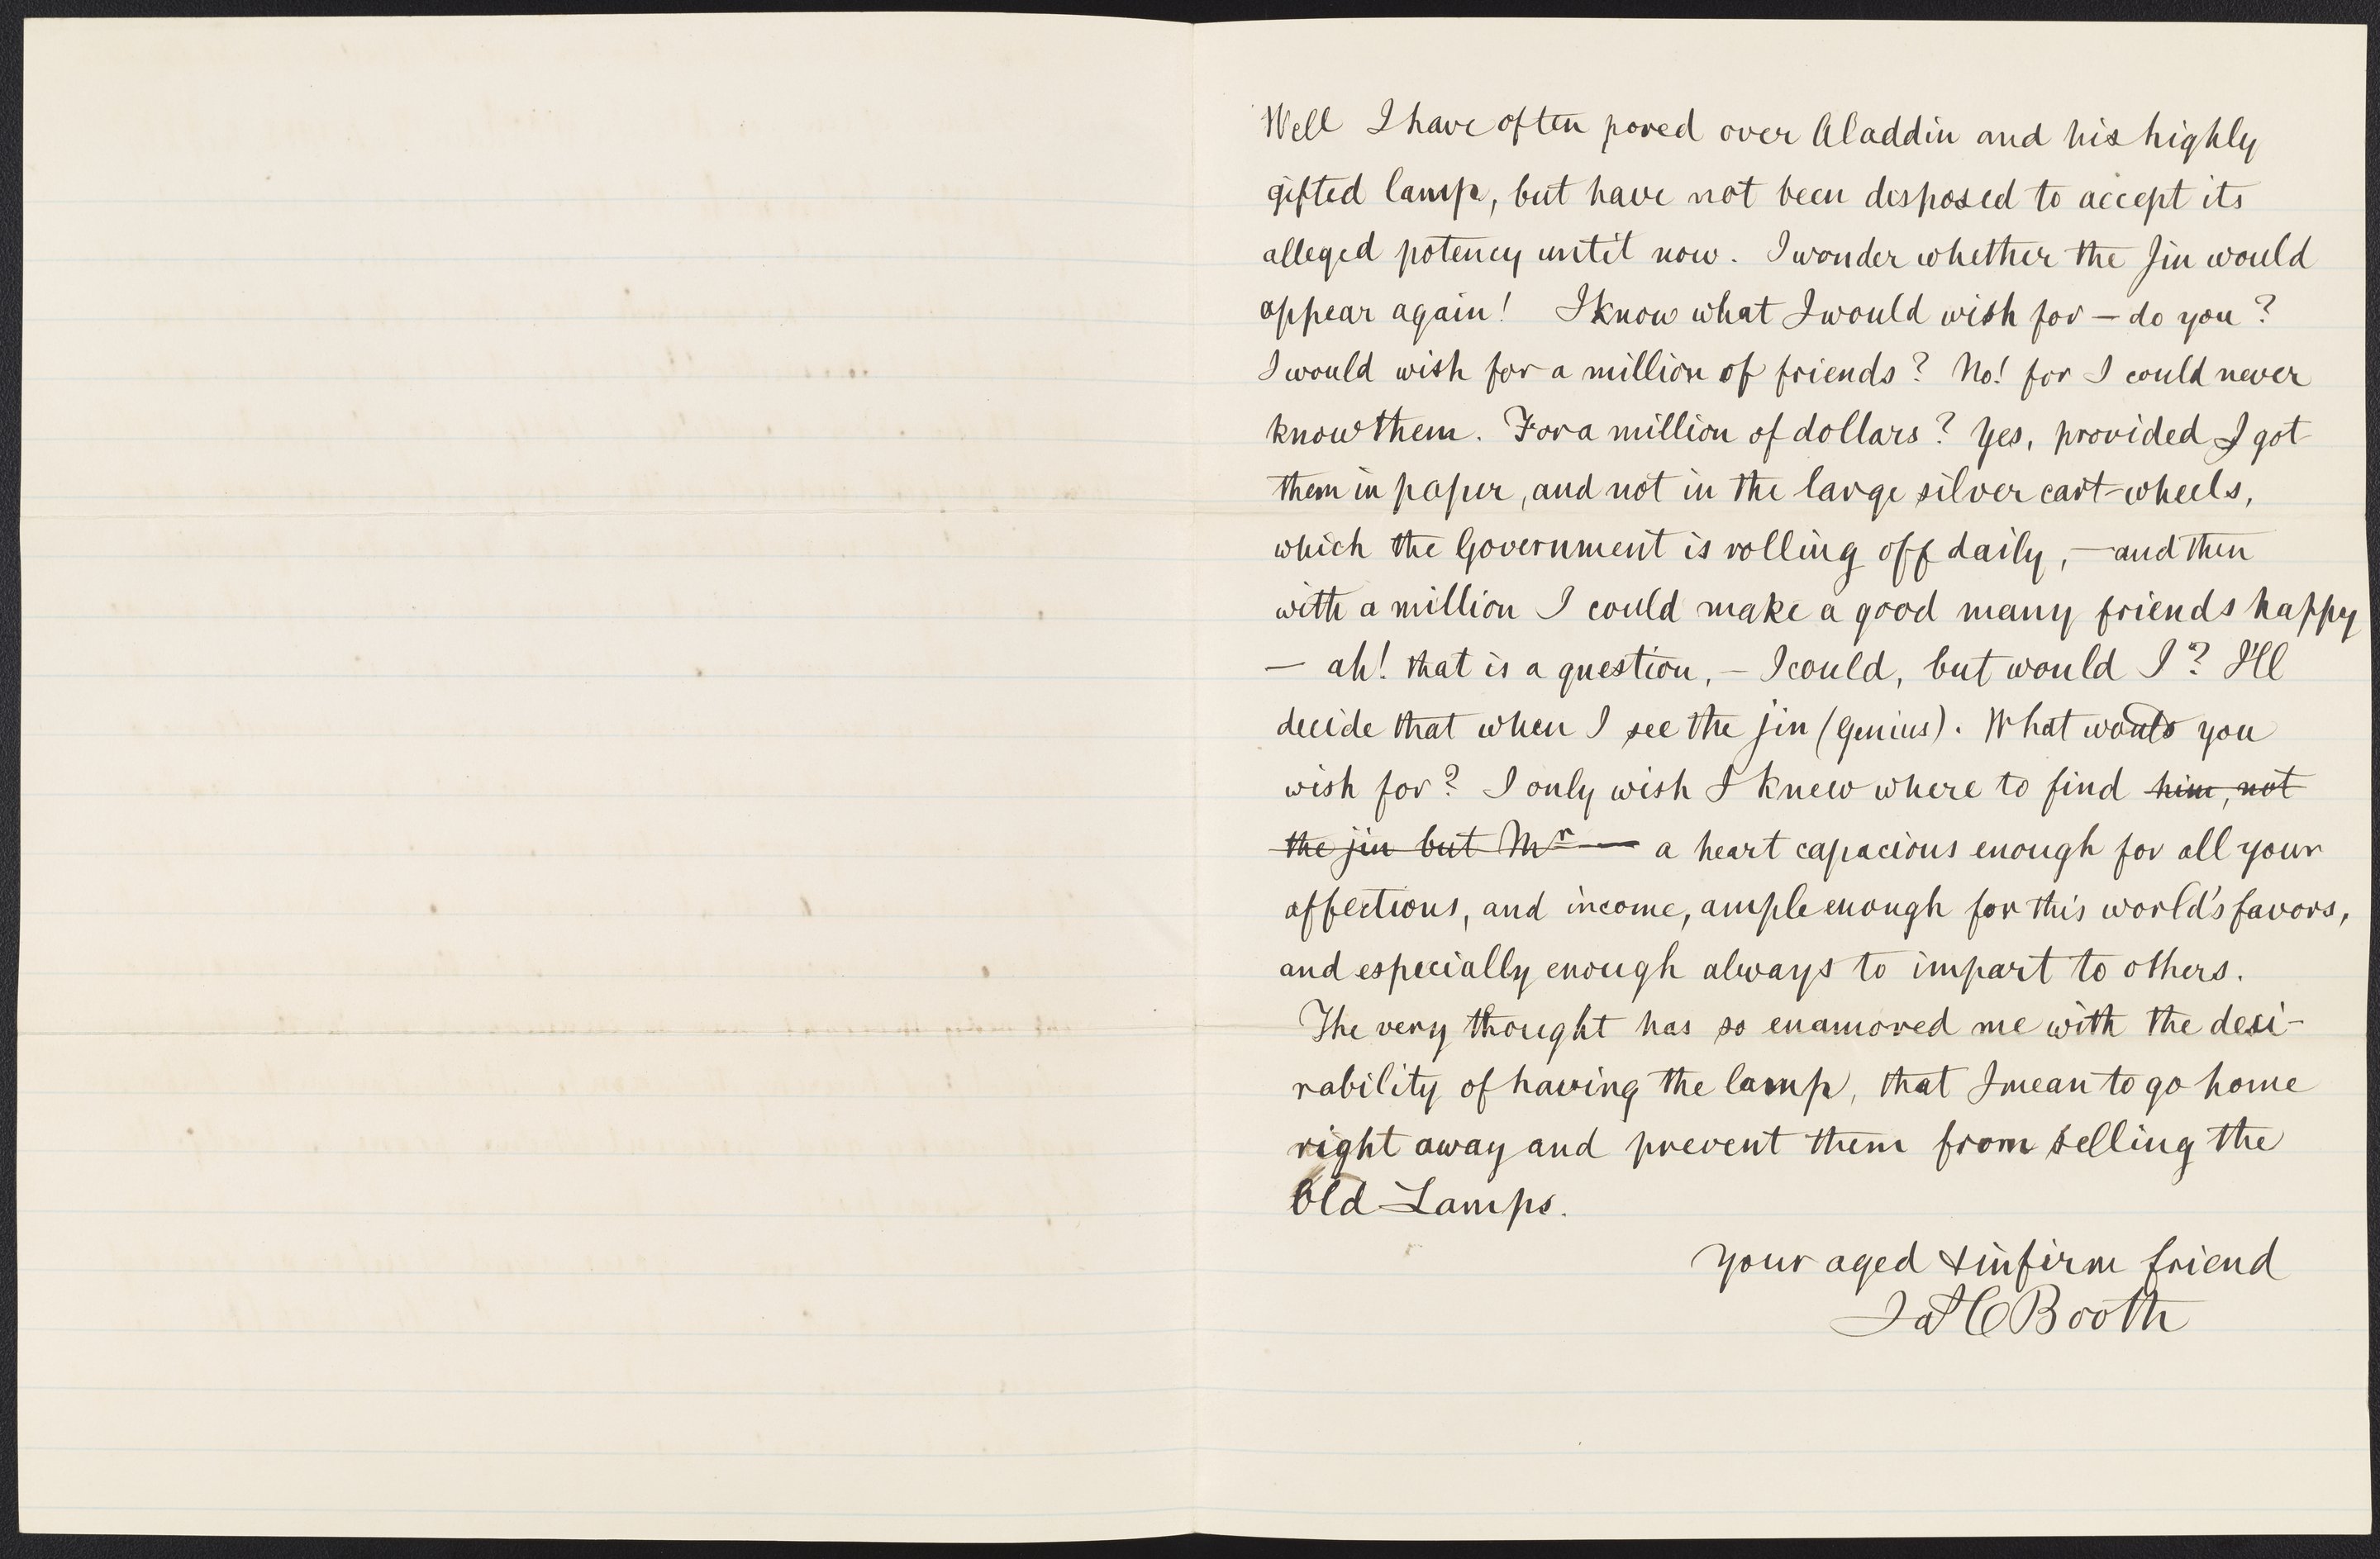 Well I have often pored over Aladdin and his highly
gifted lamp, but have not been disposed to accept its
alleged potency until now. I wonder whether the Jin would
appear again! I know what I would wish for — do you?
I would wish for a million of friends? No! for I could never
know them. For a million of dollars? Yes, provided I got
them in paper, and not in the large silver cart-wheels,
which the Government is rolling off daily, — and then
with a million I could make a good many friends happy
— ah! that is a question, — I could, but would I? I'll
decide that when I see the jin (genius). What would you
wish for? I only wish I knew where to find him, not
the jin but Mr — a heart capacious enough for all your
affections, and income, ample enough for this world's favors,
and especially enough always to impart to others.
The very thought has so enamored me with the desi-
rability of having the lamp, that I mean to go home
right away and prevent them from selling the
Old Lamps.
Your aged & infirm friend
Jas C Booth